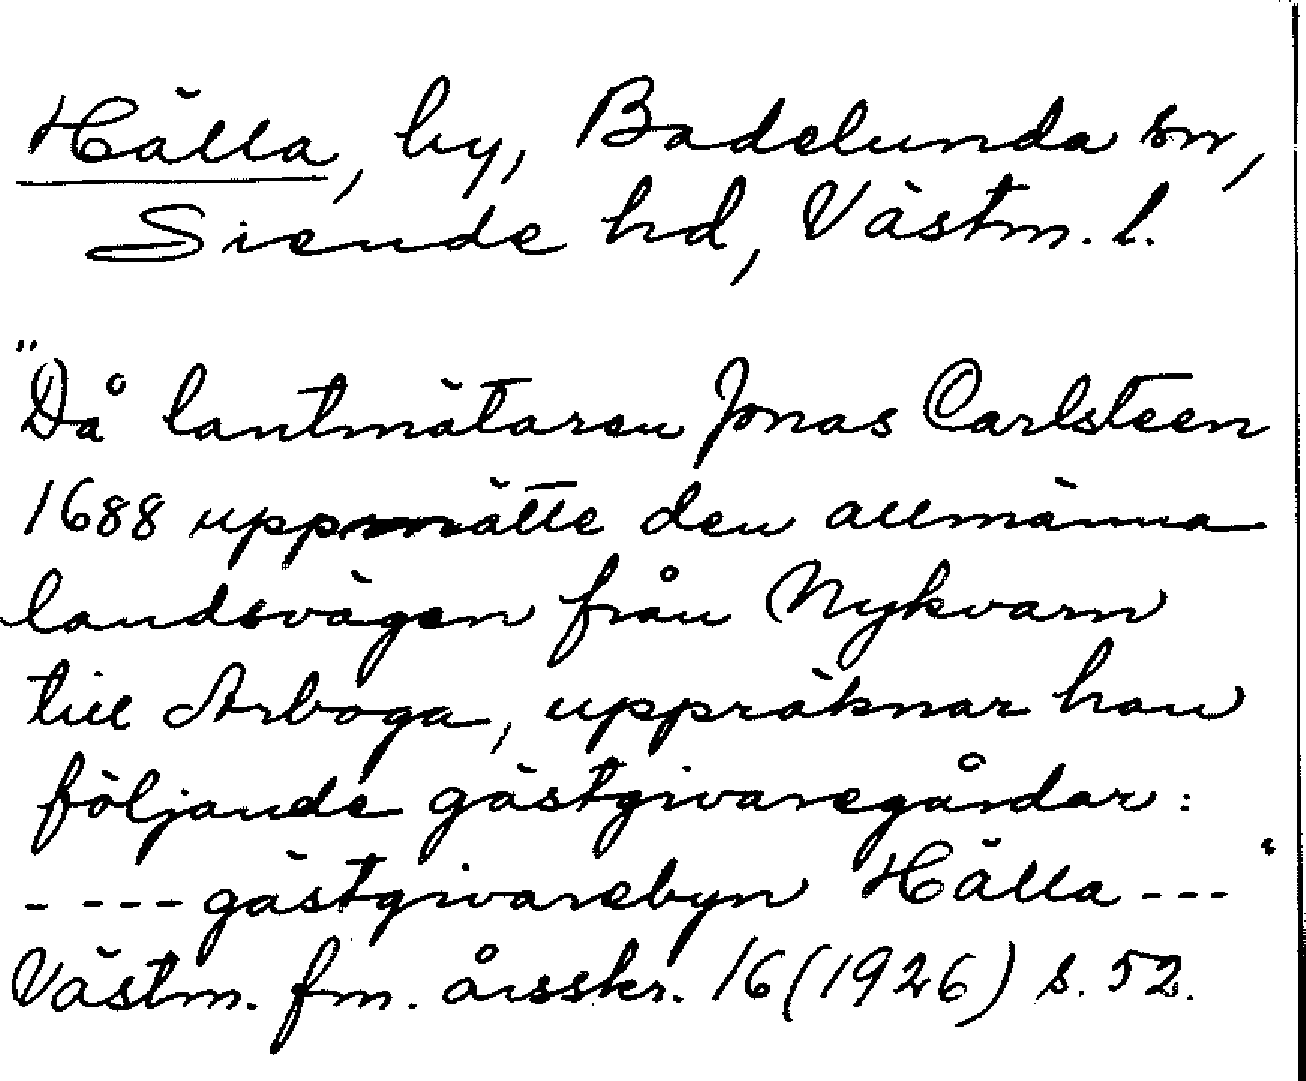 Hälla, by, Badelunda sn,
Siende hd, Västm. l.
"Då lantmätaren Jonas Carlsteen
1688 uppmätte den allmänna
landsvägen från Nykvarn
till Arboga, uppräknar han
följande gästgivaregårdar:
- - - - gästgivarebyn Hälla - - - "
Västm. fm. årsskr. 16 (1926) s. 52.